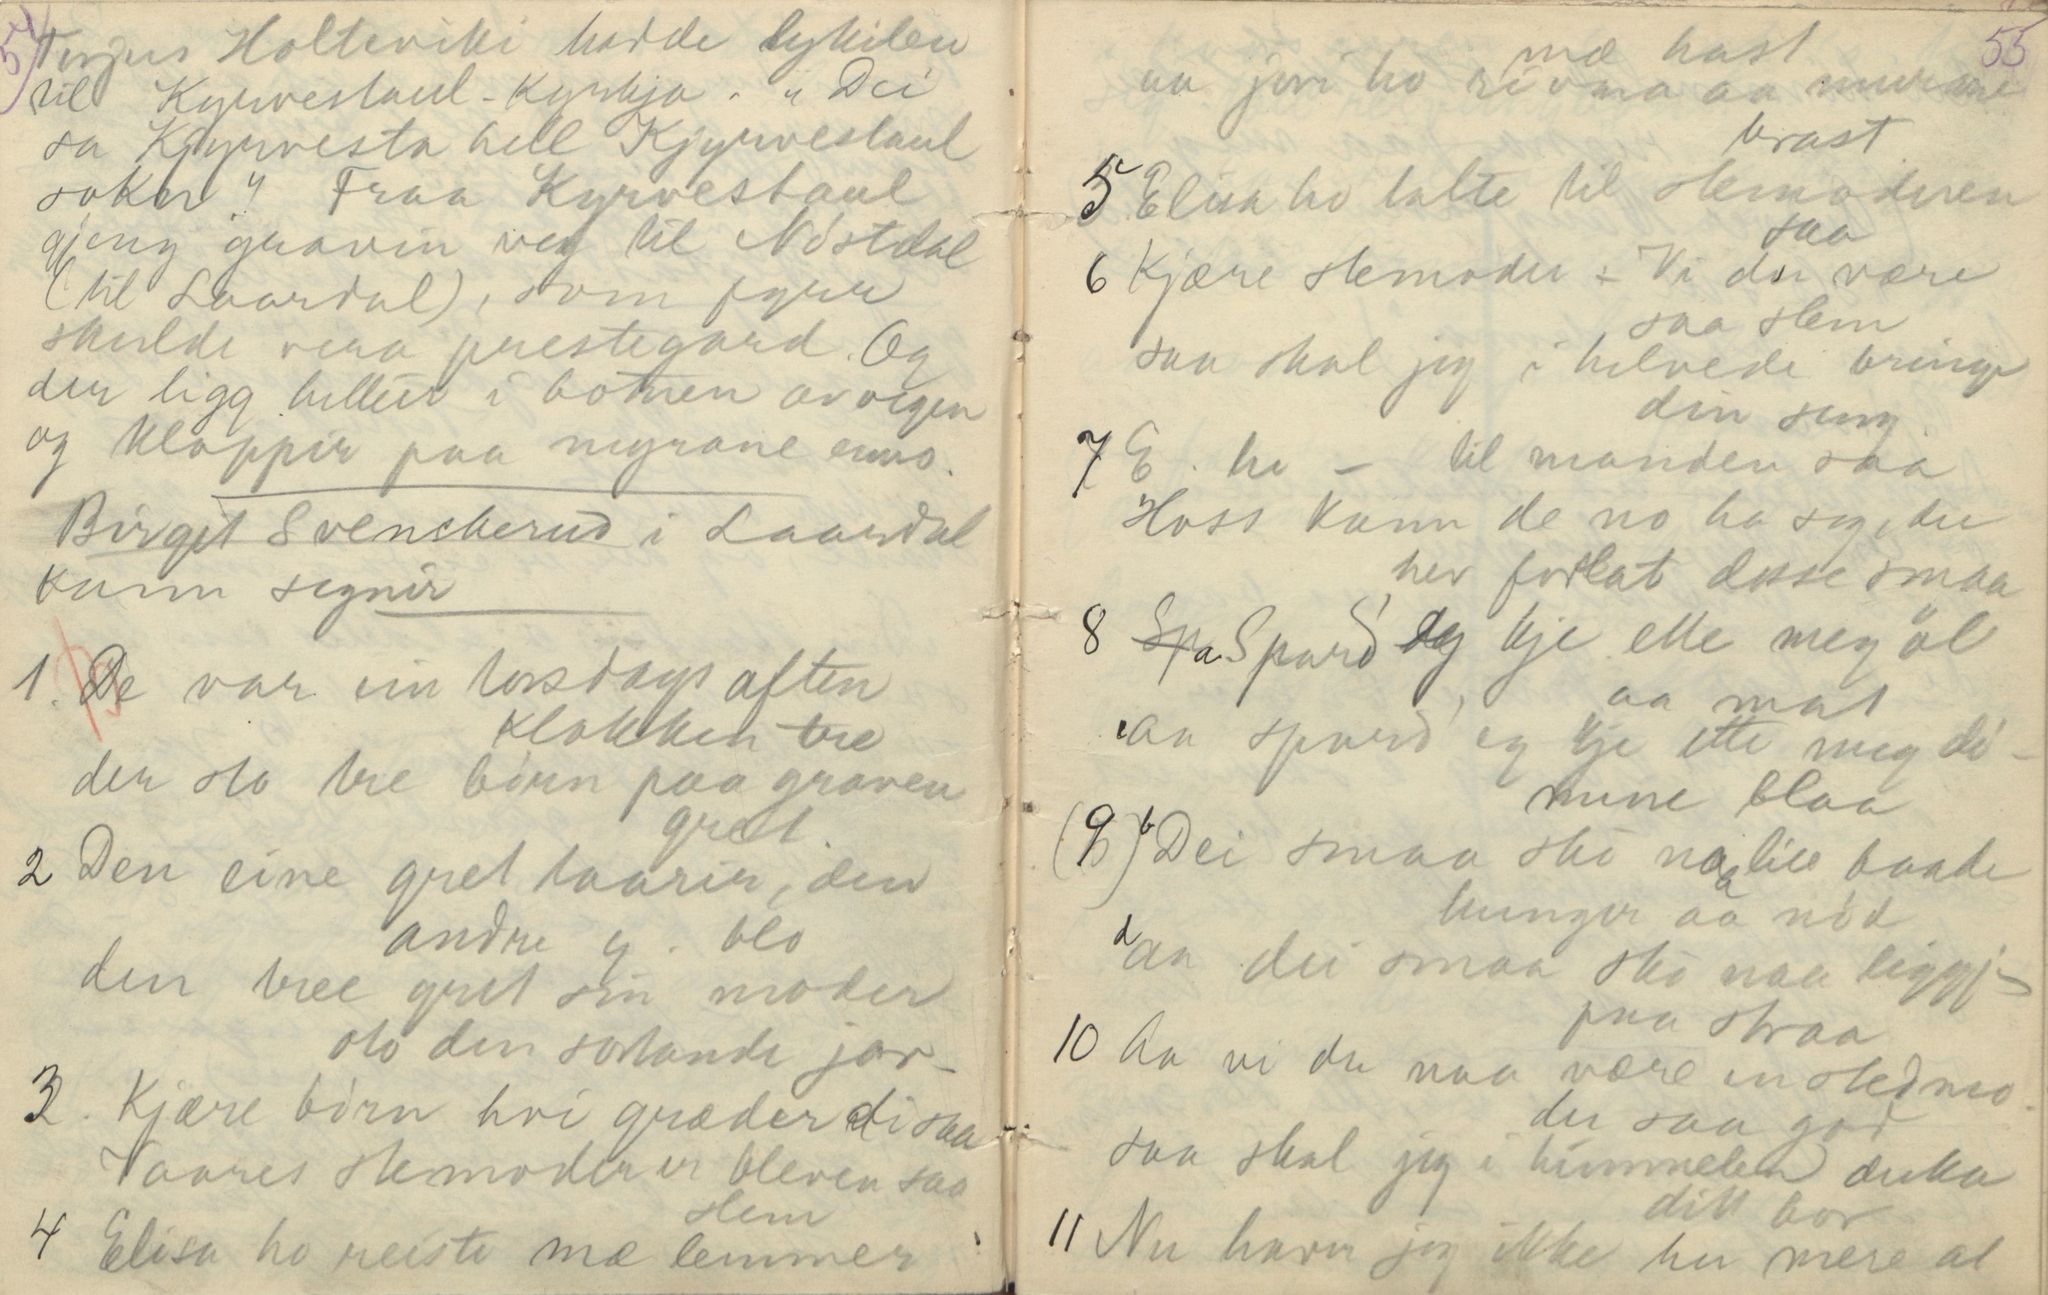 54
Targus Holteviki hadde lykilen
til Kyrvestaul-Kyrkja. "Dei
sa Kjyrvesta hell Kjyrvestaul
sokn". Fraa Kyrvestaul
gjeng gravin veg til Nöstdal
(til Laardal), som fyrr
skulde vera prestegard. Og
der ligg hellur i botnen av vegen
og kloppir paa myrane enno.
Birget Svenskerud i Laardal
kunn segnir
1. De var ein torsdags aften
klokken tre
der sto tre börn paa graven
gret.
2 Den eine gret taarir, den
andre g. blo
den tree gret sin moder
oto den sortande jor-
3. Kjære börn hvi græder di saa
Vaares stemoder er bleven saa
slem
4 Elisa ho reiste mæ lemmer
55
mæ hast
aa jori ho rivna aa murane
brast
5 Elisa ho talte til stemoderen
saa
6 Kjære stemoder - Vi du være
saa slem
saa skal jeg i helvede bringe
din seng
7 E. ho - til manden saa
Hoss kunn de no ha seg, du
hev forlat desse smaa
8 a Spard' eg kje ette meg öl
aa mat
aa spard' eg kje ette meg di-
mine blaa
(9) b Dei smaa sko naa lie baade
hunger aa nöd
d aa dei smaa sko naa liggj-
paa straa
10 Aa vi du naa være en stedmo-
der saa god
saa skal jeg i himmelen duka
ditt bor
11 Nu haver jeg ikke her mere at